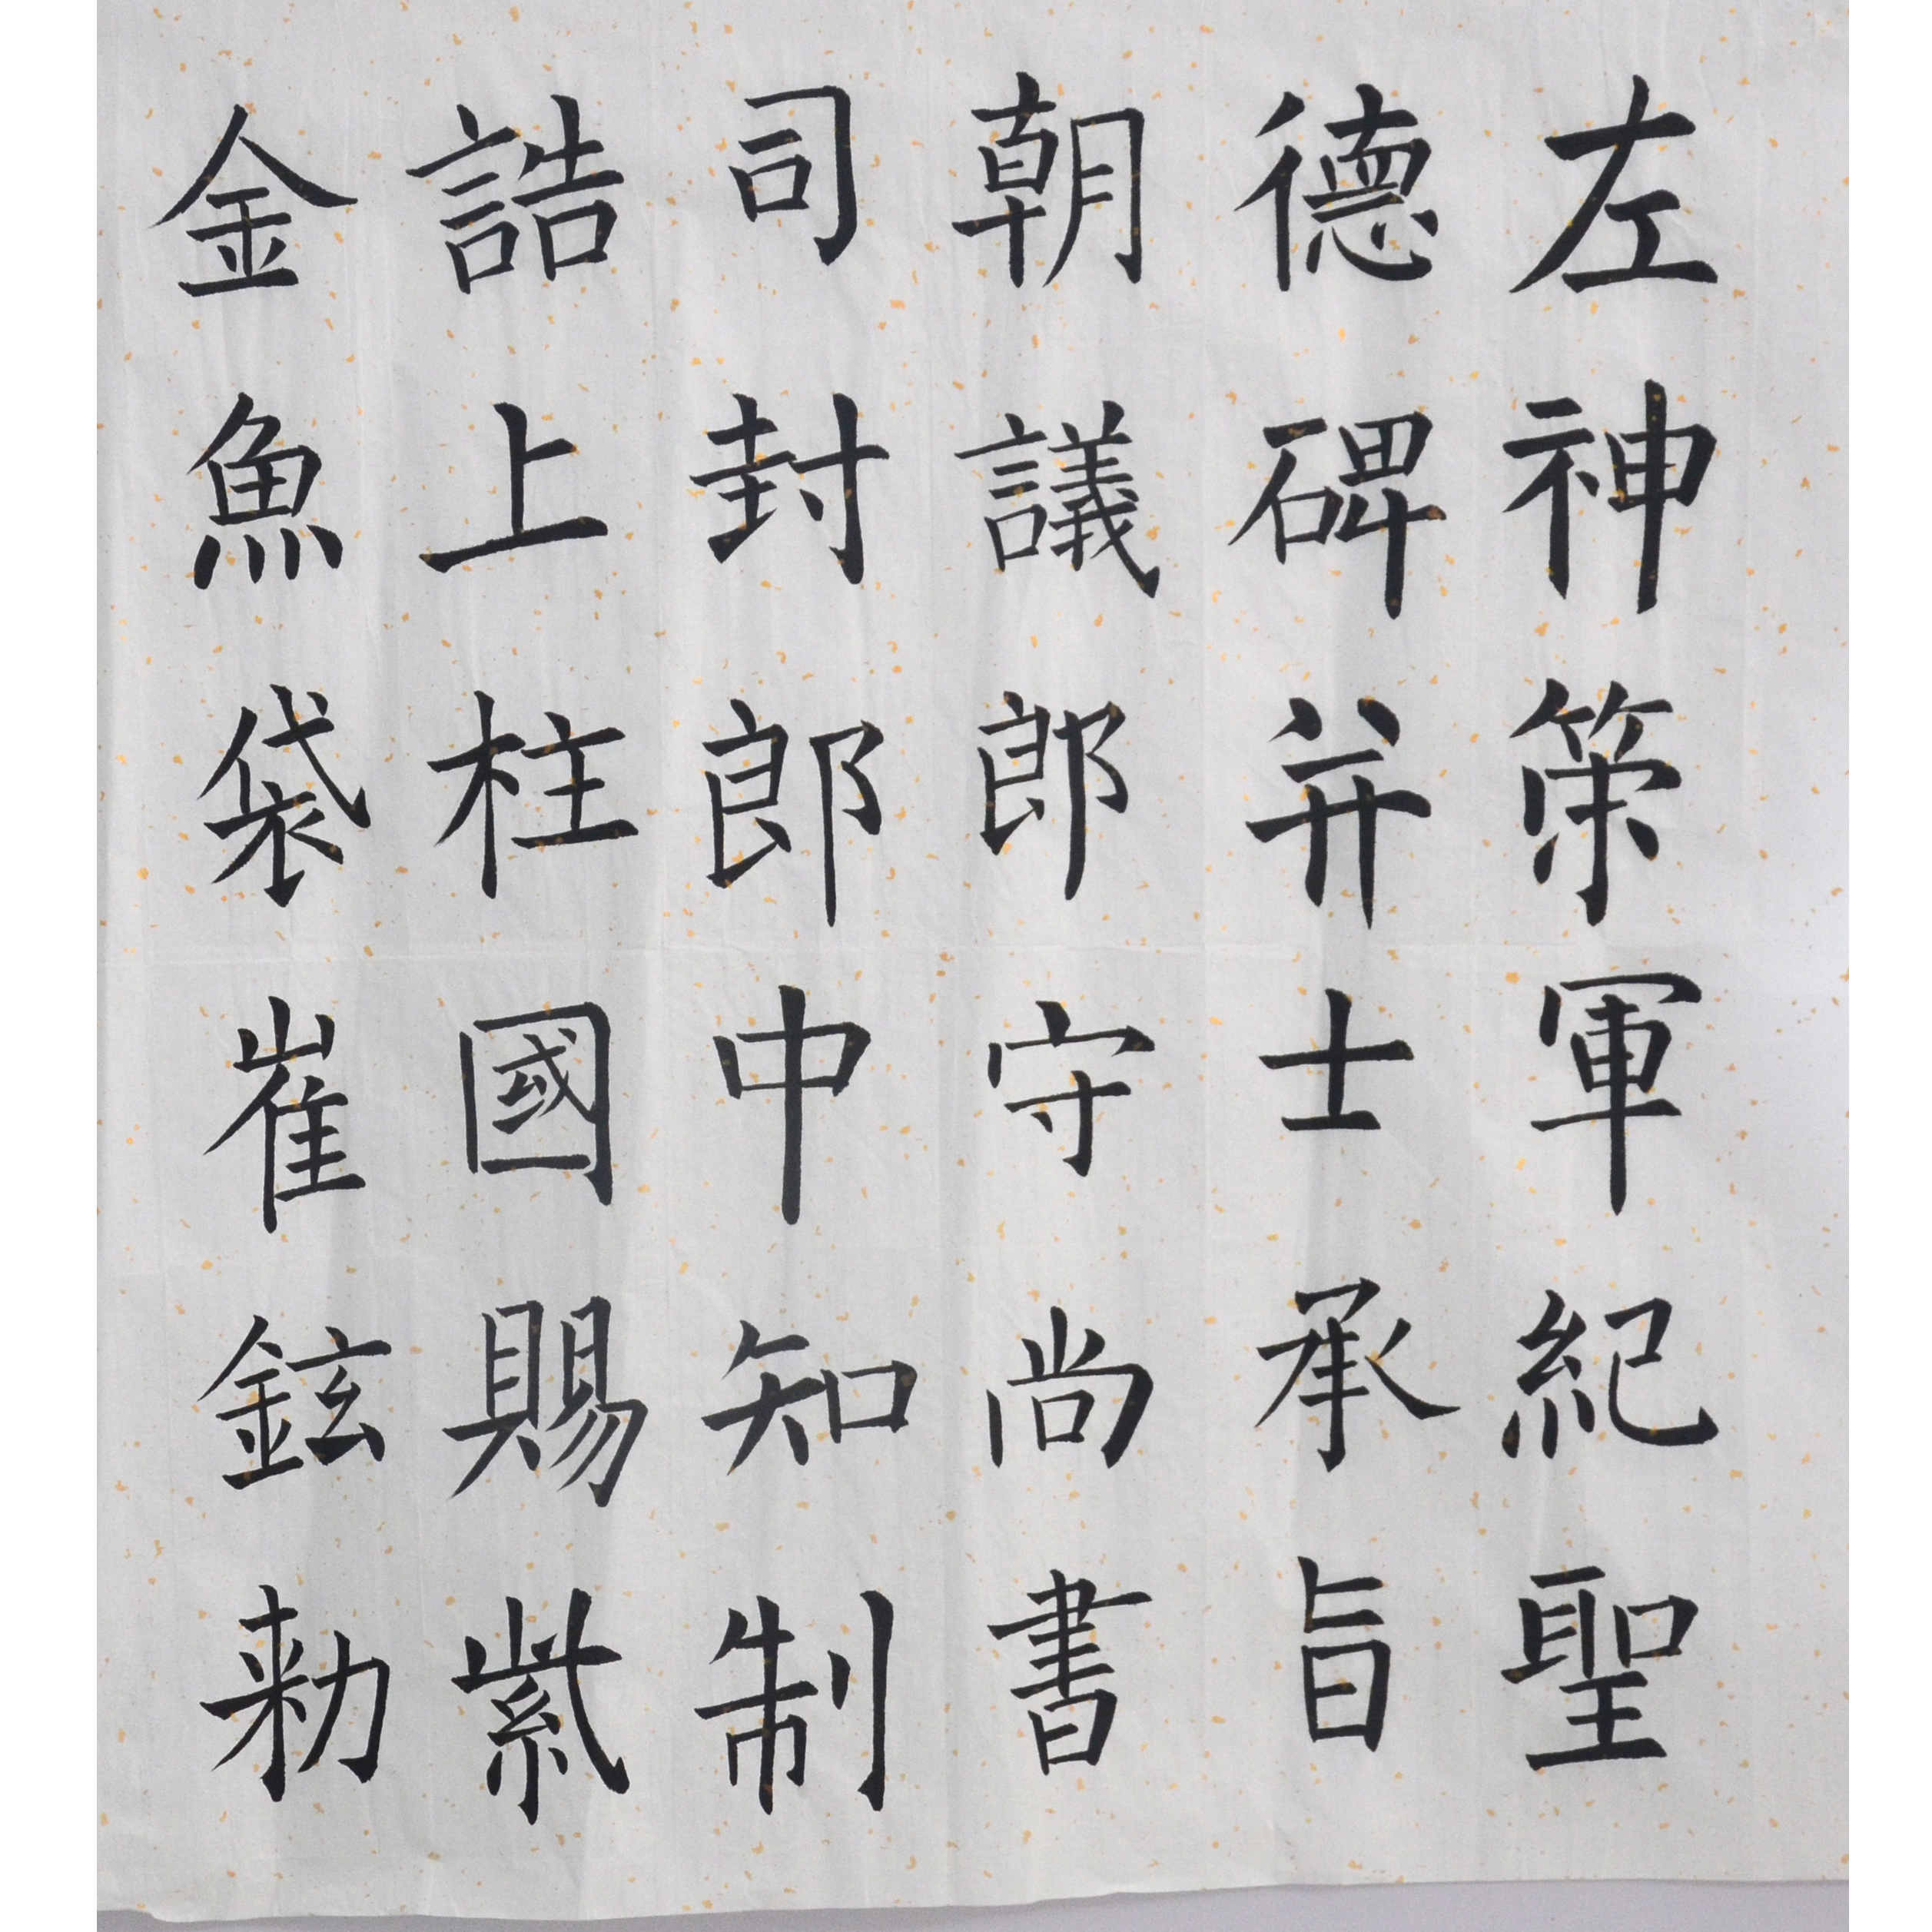 左神策軍紀聖
德碑并士承旨
朝議郎守尚書
司封郎中知制
誥上柱國賜紫
金魚袋崔鉉敕